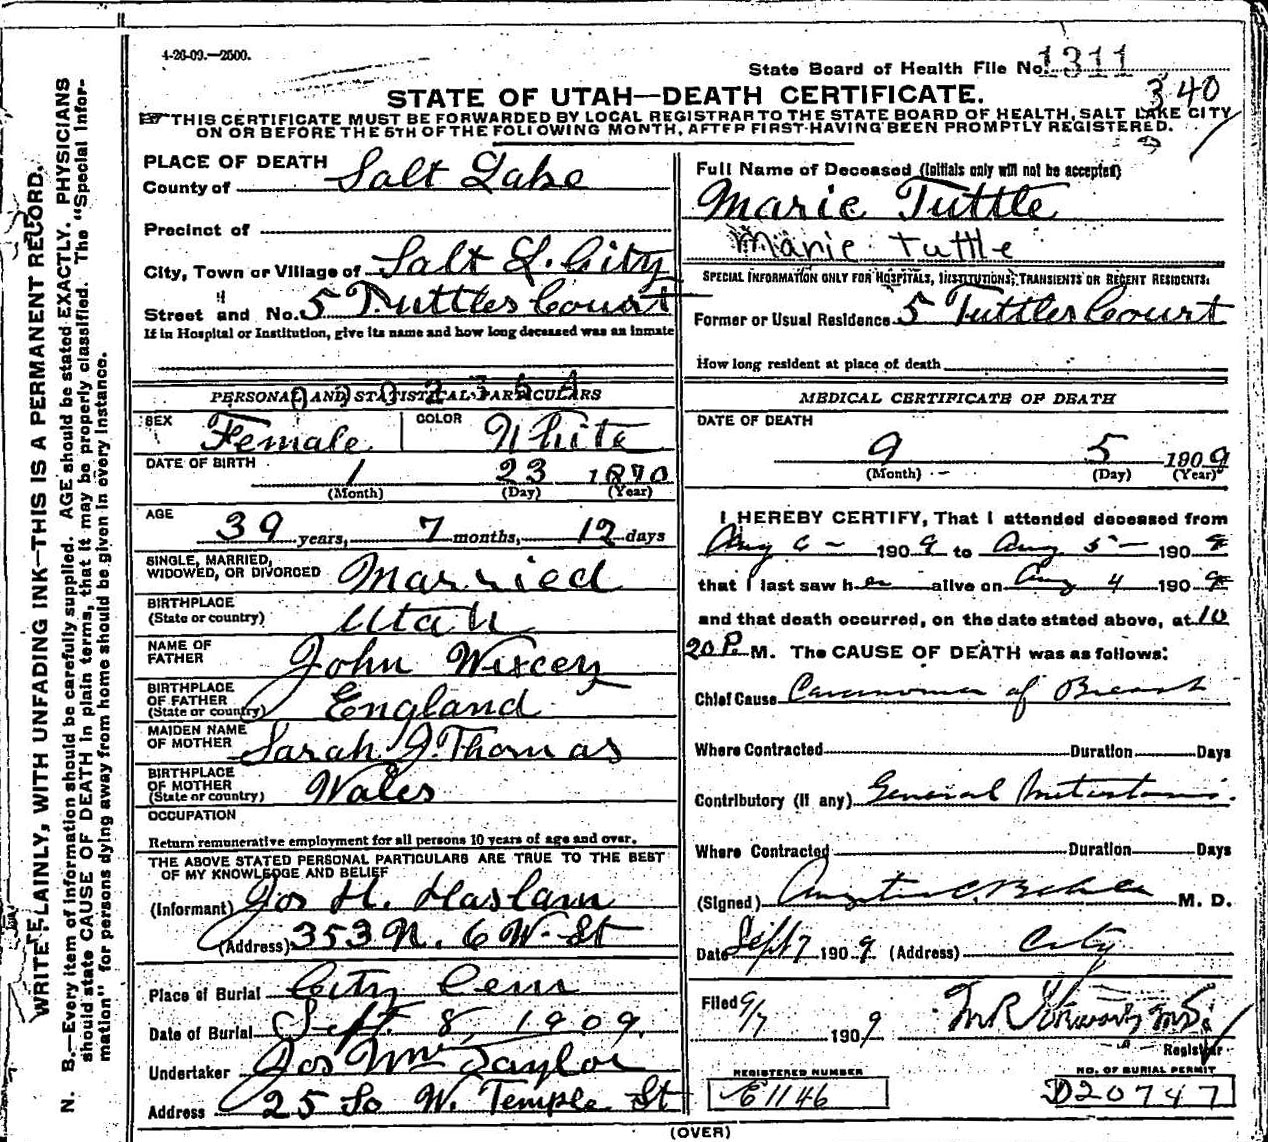 4-26-09.—2500.
State Board of Health File No. 1311
340
STATE OF UTAH—DEATH CERTIFICATE.
THIS CERTIFICATE MUST BE FORWARDED BY LOCAL REGISTRAR TO THE STATE BOARD OF HEALTH, SALT LAKE CITY
ON OR BEFORE THE 5TH OF THE FOLLOWING MONTH, AFTER FIRST HAVING BEEN PROMPTLY REGISTERED.
WRITE PLAINLY, WITH UNFADING INK—THIS IS A PERMANENT RECORD.
N. B.—Every item of information should be carefully supplied. AGE should be stated EXACTLY. PHYSICIANS
should state CAUSE OF DEATH in plain terms, that it may be properly classified. The "Special Infor-
mation" for persons dying away from home should be given in every instance.
PLACE OF DEATH
County of Salt Lake
Precinct of
City, Town or Village of Salt L. City
Street and No. 5 Tuttles Court
If in Hospital or Institution, give its name and how long deceased was an inmate
PERSONAL AND STATISTICAL PARTICULARS
SEX Female COLOR White
DATE OF BIRTH 1 23 1870
(Month) (Day) (Year)
AGE 39 years, 7 months, 12 days
SINGLE, MARRIED,
WIDOWED, OR DIVORCED Married
BIRTHPLACE
(State or country) Utah
NAME OF
FATHER John Wixcey
BIRTHPLACE
OF FATHER
(State or country) England
MAIDEN NAME
OF MOTHER Sarah J. Thomas
BIRTHPLACE
OF MOTHER
(State or country) Wales
OCCUPATION
Return remunerative employment for all persons 10 years of age and over.
THE ABOVE STATED PERSONAL PARTICULARS ARE TRUE TO THE BEST
OF MY KNOWLEDGE AND BELIEF
(Informant) Jos H. Haslam
(Address) 353 N. 6 W. St
Place of Burial City Cem
Date of Burial Sept. 8, 1909.
Undertaker Jos Wm Taylor
Address 25 So W. Temple St
Full Name of Deceased (Initials only will not be accepted)
Marie Tuttle
Marie Tuttle
SPECIAL INFORMATION ONLY FOR HOSPITALS, INSTITUTIONS, TRANSIENTS OR RECENT RESIDENTS.
Former or Usual Residence 5 Tuttles Court
How long resident at place of death
MEDICAL CERTIFICATE OF DEATH
DATE OF DEATH
9 5 1909
(Month) (Day) (Year)
I HEREBY CERTIFY, That I attended deceased from
Aug 6 — 1909 to Aug 5 — 1909
that I last saw her alive on Aug 4 1909
and that death occurred, on the date stated above, at 10
20 P. M. The CAUSE OF DEATH was as follows:
Chief Cause Carcinoma of Breast
Where Contracted Duration Days
Contributory (if any) General
Where Contracted Duration Days
(Signed) M. D.
Date Sept 7 1909 (Address) City
Filed 9/7 1909
Registrar
REGISTERED NUMBER
E1146
NO. OF BURIAL PERMIT
D20747
(OVER)